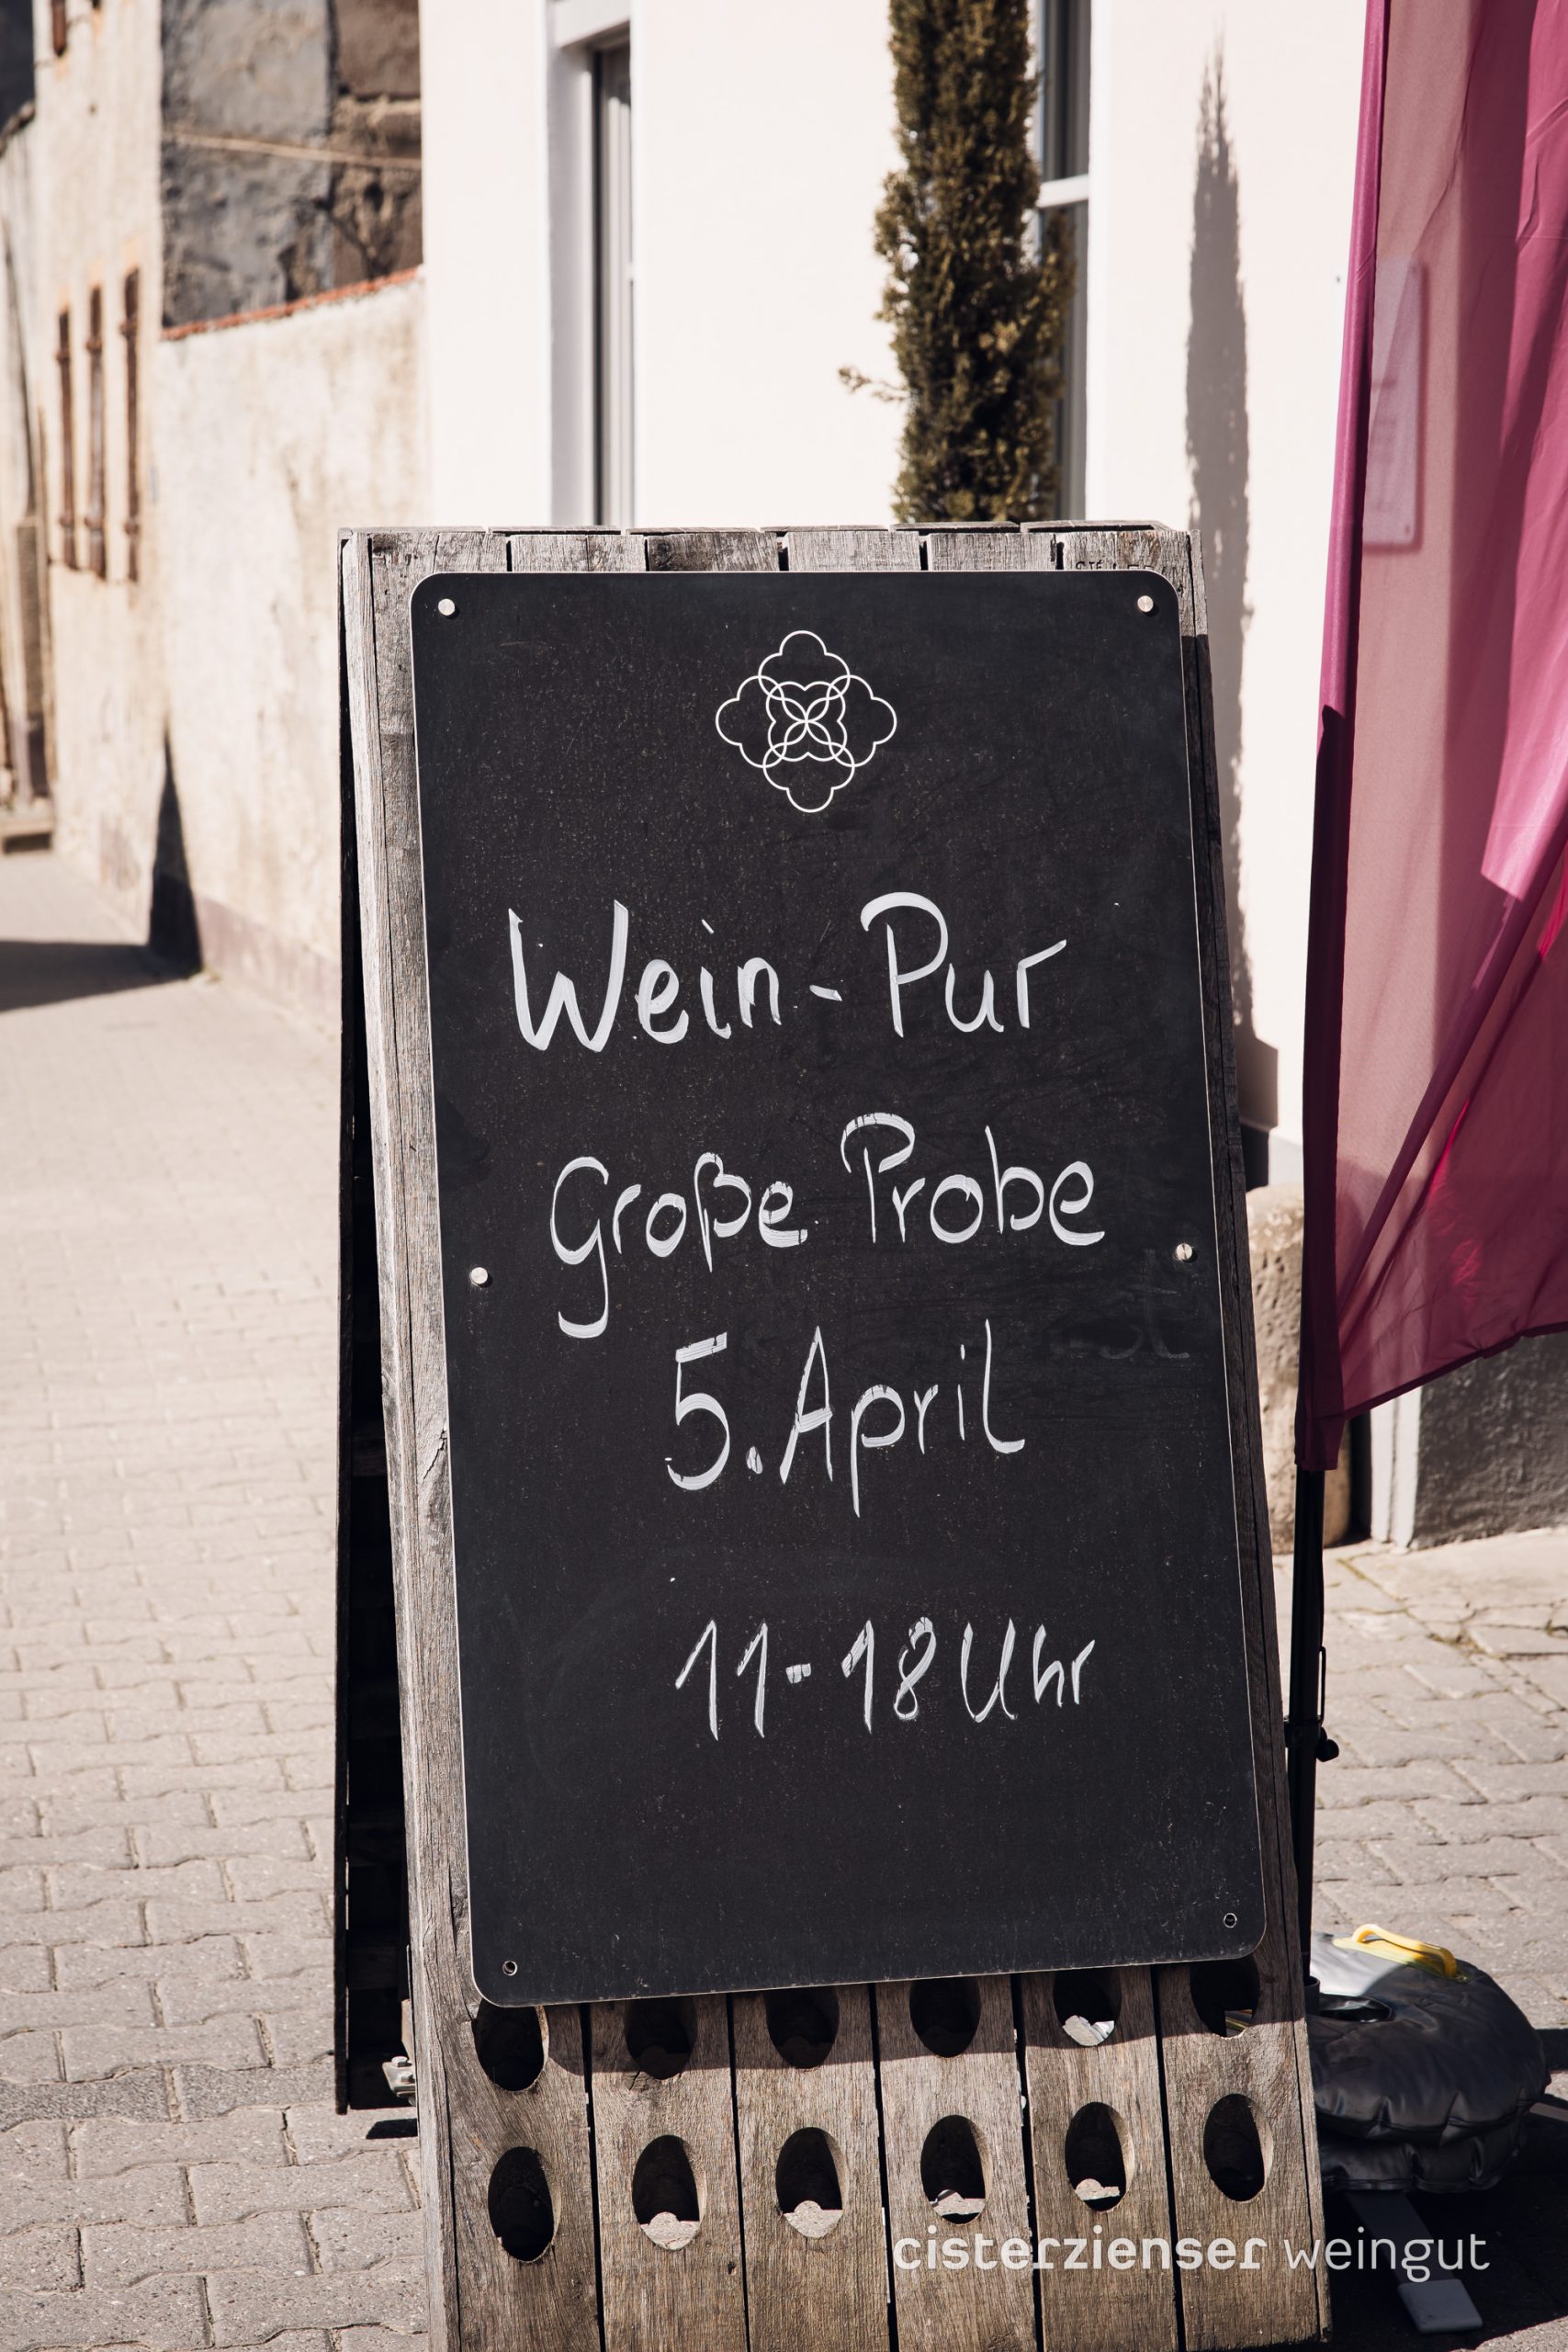 Wein-Pur
Große Probe
5. April
11-18 Uhr
cisterzienser weingut